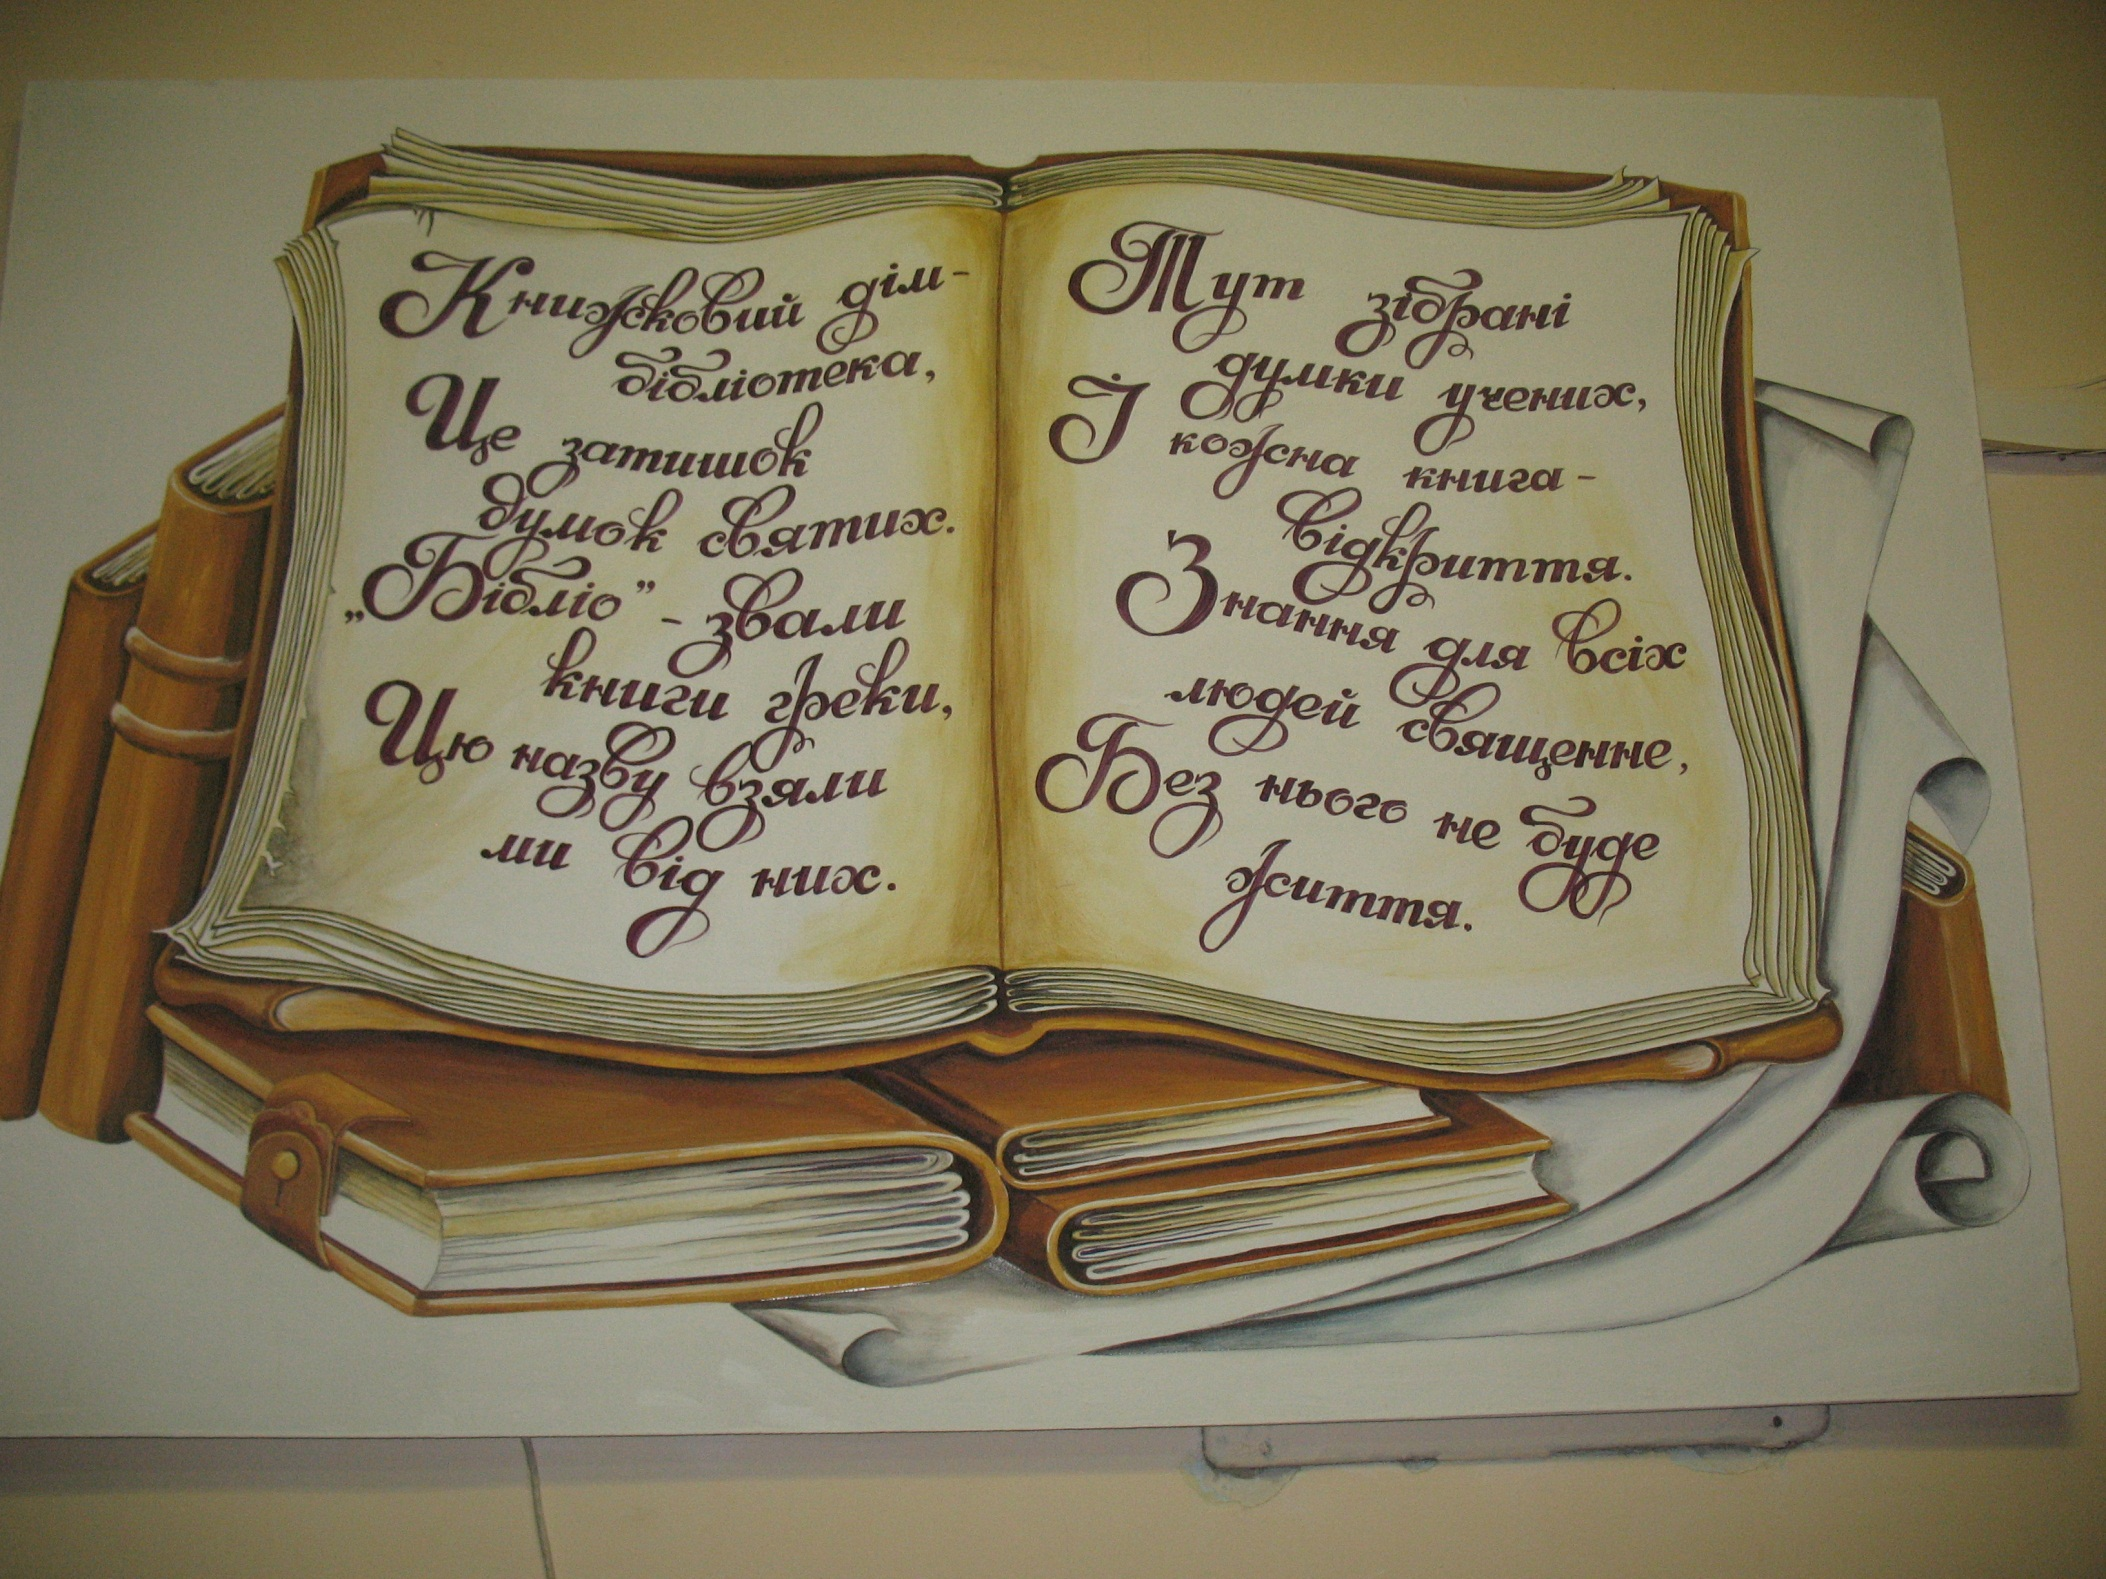 Книжковий дім-
бібліотека,
Це затишок
думок святих.
„Бібліо” - звали
книги греки,
Цю назву взяли
ми від них.
Тут зібрані
думки учених,
І кожна книга-
відкриття.
Знання для всіх
людей священне,
Без нього не буде
життя.